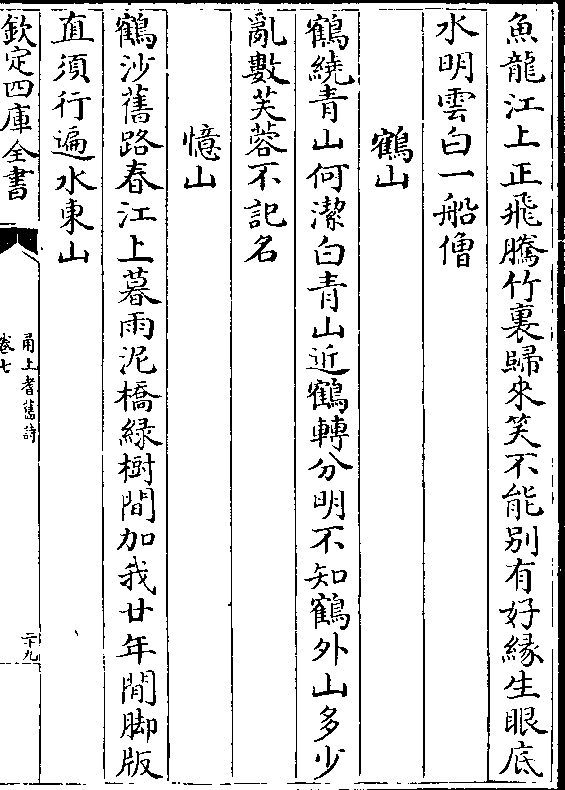 魚龍江上正飛騰竹裏歸來笑不能别有好緣生眼底
水明雲白一船僧
鶴山
鶴繞青山何潔白青山近鶴轉分明不知鶴外山多少
亂數芙蓉不記名
憶山
鶴沙舊路春江上暮雨泥橋綠樹間加我廿年閒脚版
直須行遍水東山
欽定四庫全書
甬上耆舊詩
卷七
二十九